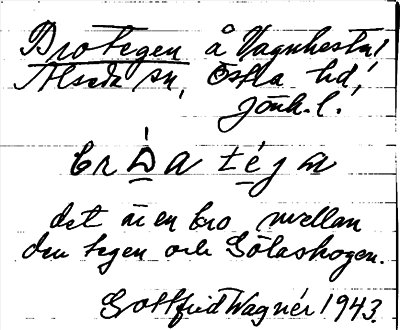 Brotegen å Vagnhesta!
Alseda sn, Östra hd,
Jönk. l.
brÒa téja
det är en bro mellan
den tegen och Götaskogen.
Gottfrid Wagnér 1943.